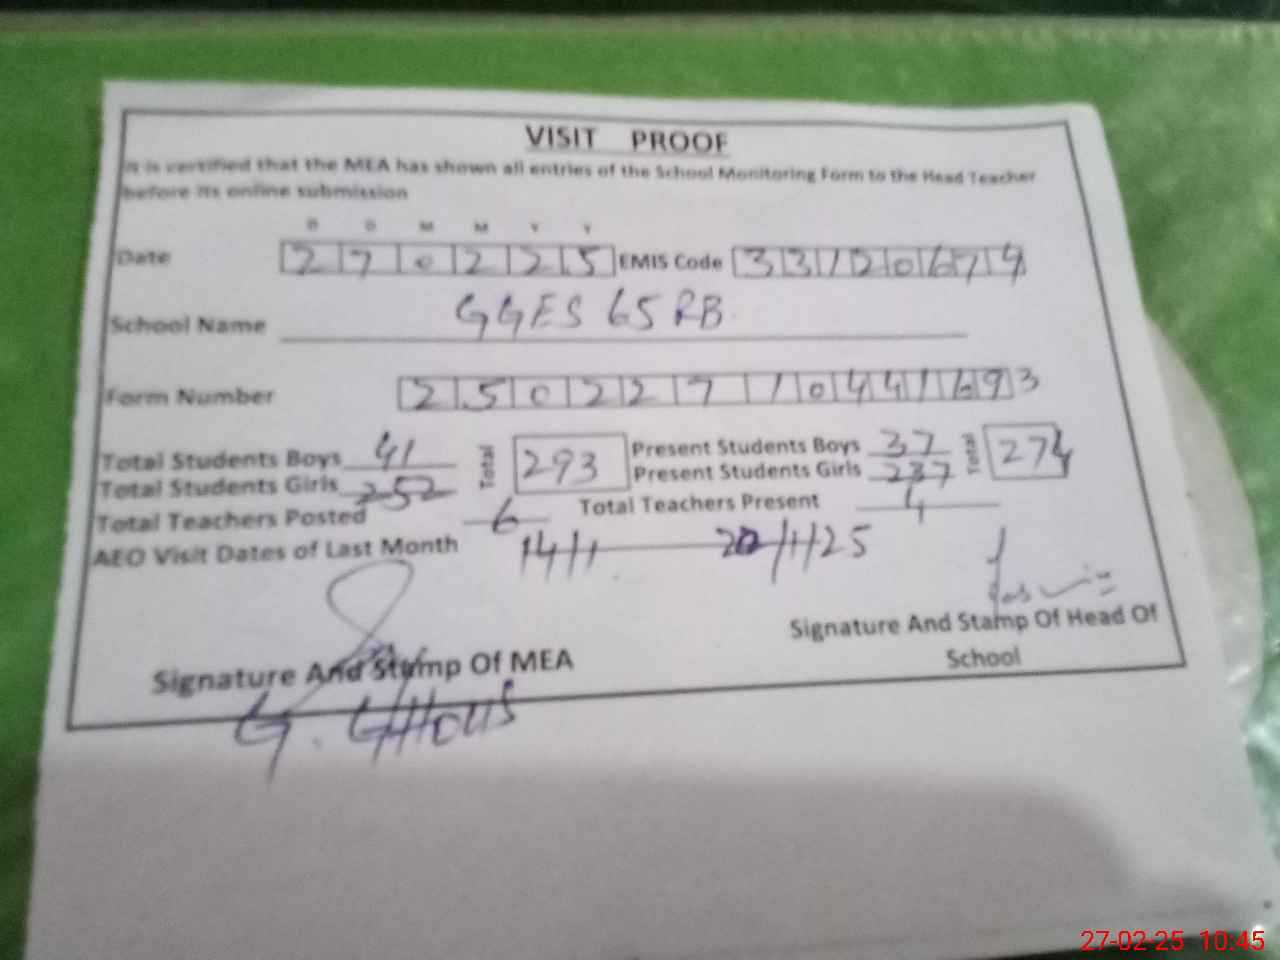 VISIT PROOF
It is certified that the MEA has shown all entries of the School Monitoring Form to the Head Teacher
before its online submission
D D M M Y Y
Date 270225 EMIS Code 33120674
School Name GGES 65 RB
Form Number 25022710441693
Total Students Boys 41 Total 293 Present Students Boys 37 Total 274
Total Students Girls 252 Present Students Girls 237
Total Teachers Posted 6 Total Teachers Present 4
AEO Visit Dates of Last Month 14/1 20/1/25
Signature And Stamp Of MEA
Signature And Stamp Of Head Of
School
G. GHOUS
27-02-25 10:45